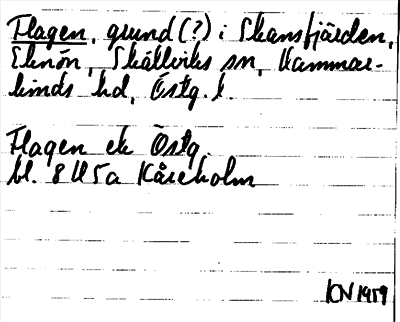 Flagen, grund (?) i Skansfjärden,
Eknön, Skällviks sn, Hammar-
kinds hd, Östg. l.
Flagen ek Östg.
bl. 8 H 5a Kåreholm
KN 1959